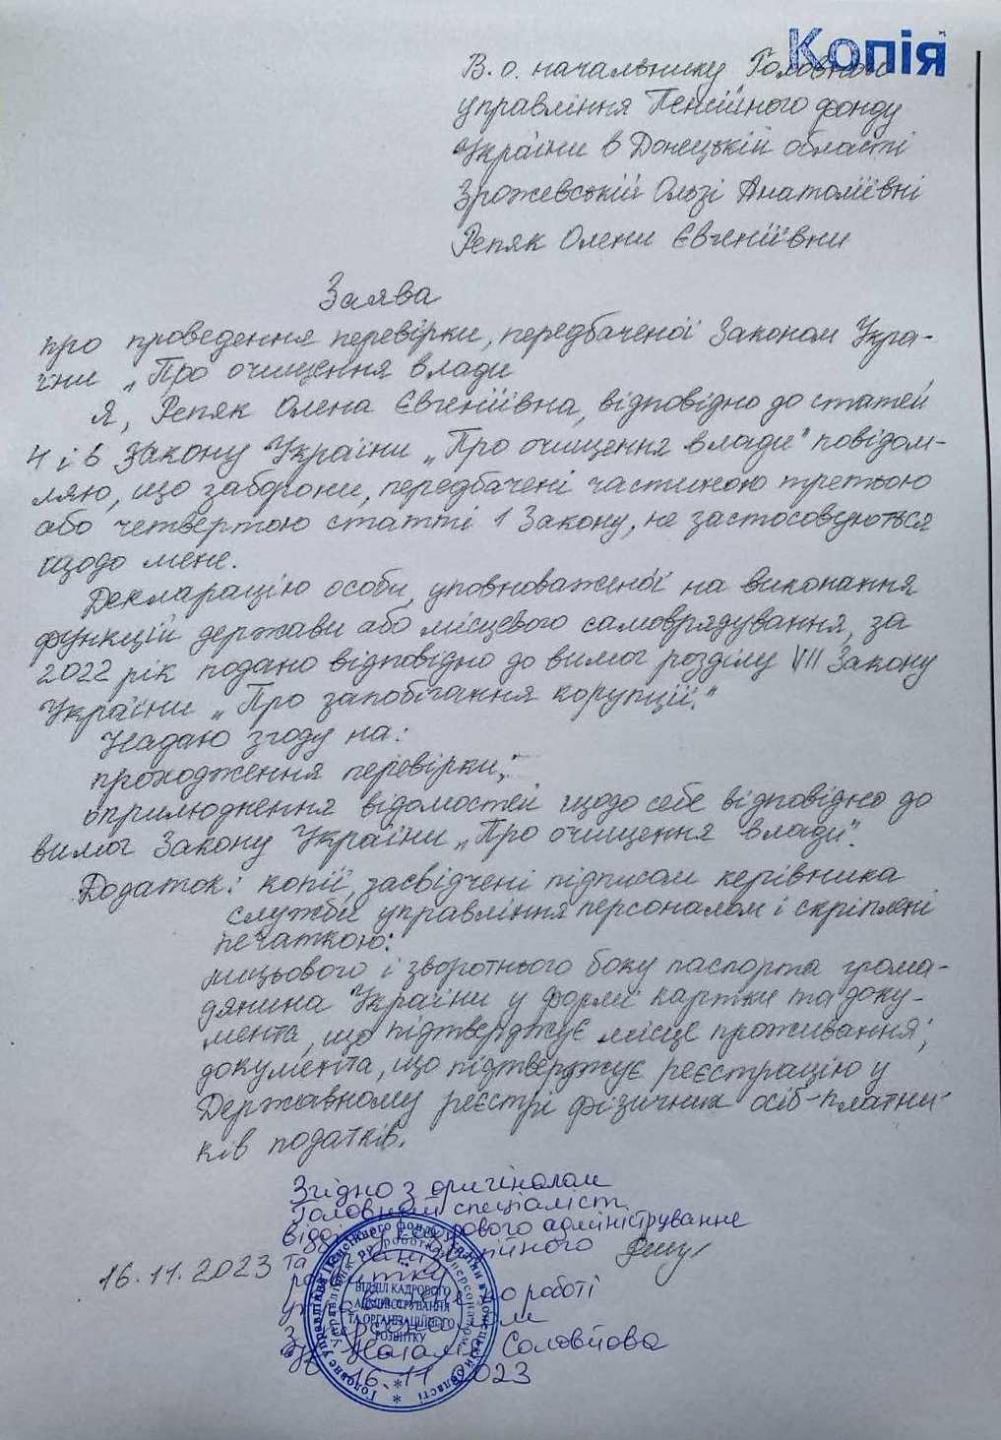 Копія
В. о. начальнику Головного
управління Пенсійного фонду
України в Донецькій області
Зрожевській Ользі Анатоліївні
Репяк Олени Євгеніївни
Заява
про проведення перевірки, передбаченої Законом Укра-
їни „Про очищення влади
Я, Репяк Олена Євгеніївна, відповідно до статей
4 і 6 Закону України „Про очищення влади" повідом-
ляю, що заборони, передбачені частиною третьою
або четвертою статті 1 Закону, не застосовуються
щодо мене.
Декларацію особи, уповноваженої на виконання
функцій держави або місцевого самоврядування, за
2022 рік подано відповідно до вимог розділу VII Закону
України „Про запобігання корупції."
Надаю згоду на:
проходження перевірки;
оприлюднення відомостей щодо себе відповідно до
вимог Закону України „Про очищення влади".
Додаток: копії, засвідчені підписом керівника
служби управління персоналом і скріплені
печаткою:
лицьового і зворотнього боку паспорта грома-
дянина України у формі картки та доку-
мента, що підтверджує місце проживання;
документа, що підтверджує реєстрацію у
Державному реєстрі фізичних осіб-платни-
ків податків.
Згідно з оригіналом
Головний спеціаліст
відділу кадрового адміністрування
та організаційного
розвитку
по роботі
16.11.2023
Наталія Соловйова
16.11.2023
Головне управління Пенсійного фонду України в Донецькій області
Управління по роботі з персоналом
ВІДДІЛ КАДРОВОГО
АДМІНІСТРУВАННЯ
ТА ОРГАНІЗАЦІЙНОГО
РОЗВИТКУ